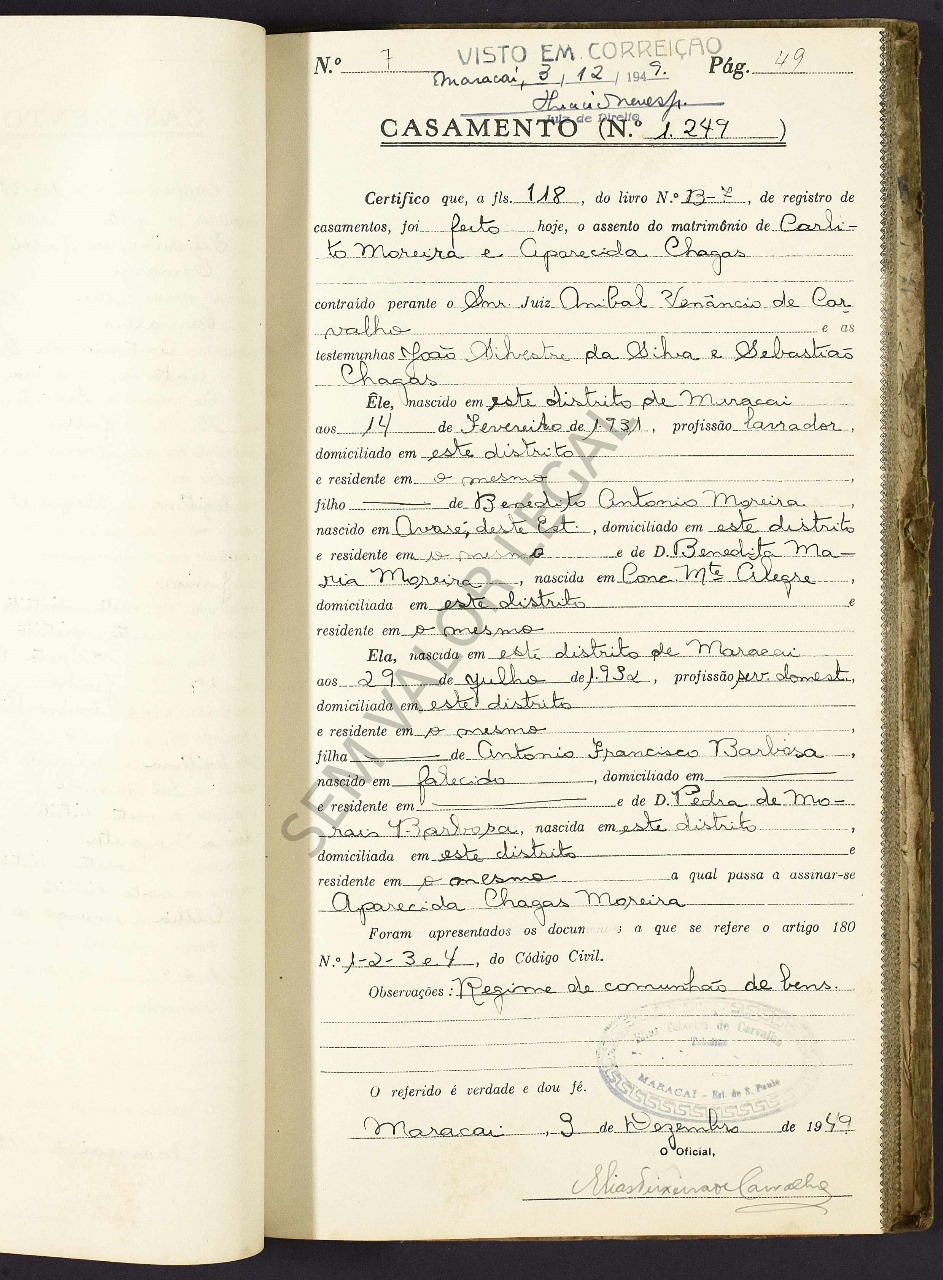 N.º 7 VISTO EM CORREIÇÃO Pág. 49
Maracaí, 3 / 12 / 1949.
Juiz de Direito
CASAMENTO (N.º 1.249)
Certifico que, a fls. 118, do livro N.º B-7, de registro de
casamentos, foi feito hoje, o assento do matrimônio de Carli-
to Moreira e Aparecida Chagas
contraído perante o Snr. Juiz Anibal Venâncio de Car-
valho e as
testemunhas João Silvestre da Silva e Sebastião
Chagas
Êle, nascido em este distrito de Maracai
aos 14 de Fevereiro de 1931, profissão lavrador,
domiciliado em este distrito
e residente em o mesmo,
filho de Benedito Antonio Moreira,
nascido em Avaré, deste Est., domiciliado em este distrito
e residente em o mesmo e de D. Benedita Ma-
ria Moreira, nascida em Conc. Mte Alegre,
domiciliada em este distrito e
residente em o mesmo
Ela, nascida em este distrito de Maracai
aos 29 de Julho de 1.932, profissão ser. domest.,
domiciliada em este distrito
e residente em o mesmo,
filha de Antonio Francisco Barbosa,
nascido em falecido, domiciliado em
e residente em e de D. Pedra de Mo-
rais Barbosa, nascida em este distrito,
domiciliada em este distrito e
residente em o mesmo a qual passa a assinar-se
Aparecida Chagas Moreira
Foram apresentados os docum s a que se refere o artigo 180
N.º 1-2-3 e 4, do Código Civil.
Observações: Regime de comunhão de bens.
Elias Teixeira de Carvalho
Tabelião
MARACAÍ - Est. de S. Paulo
O referido é verdade e dou fé.
Maracai, 3 de Dezembro de 1949
O Oficial,
Elias Teixeira de Carvalho
SEM VALOR LEGAL